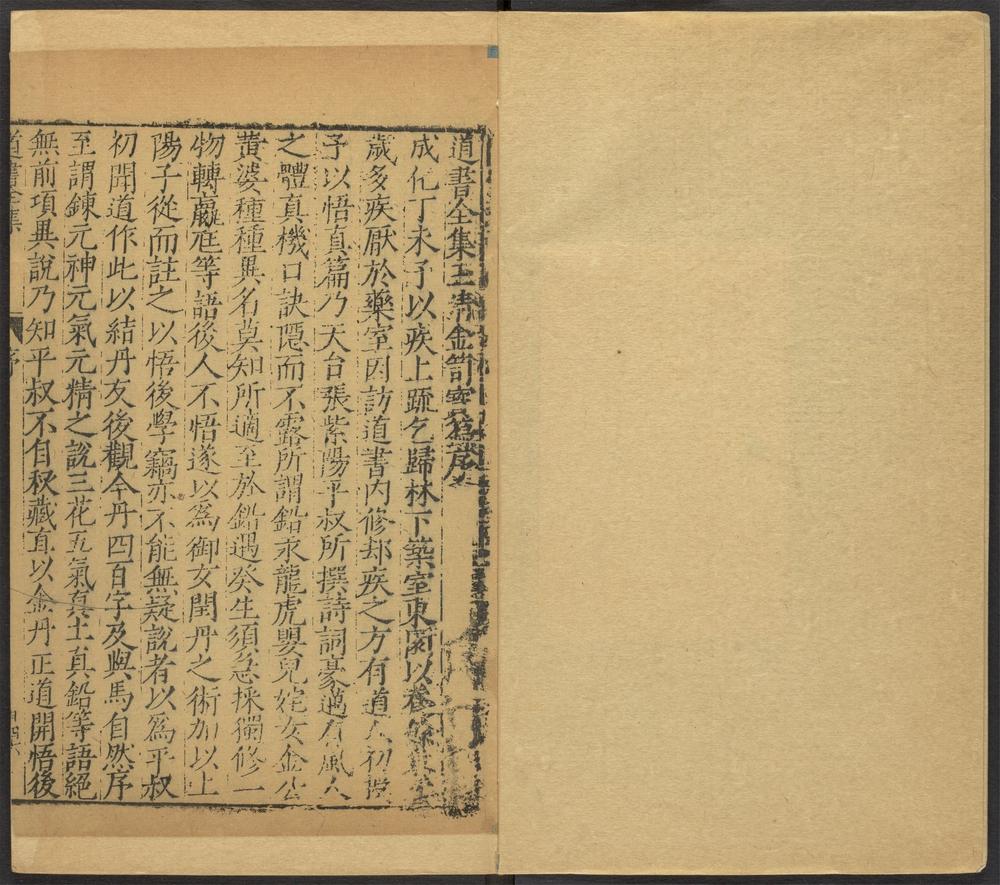 道書全集玉清金笥寶籙序
成化丁未予以疾上疏乞歸林下築室東園以養
歲多疾厭於藥室因訪道書内修却疾之方有道人初授
予以悟真篇乃天台張紫陽平叔所撰詩詞豪邁有風人
之體真機口訣隱而不露所謂鉛汞龍虎嬰兒姹女金公
黃婆種種異名莫知所適至於鉛遇癸生須急採獨修一
物轉羸尫等語後人不悟遂以爲御女閨丹之術加以上
陽子從而註之以悟後學竊亦不能無疑說者以爲平叔
初聞道作此以結丹友後觀金丹四百字及與馬自然序
至謂鍊元神元氣元精之說三花五氣真土真鉛等語絕
無前項異說乃知平叔不自秘藏直以金丹正道開悟後
道書全集
序